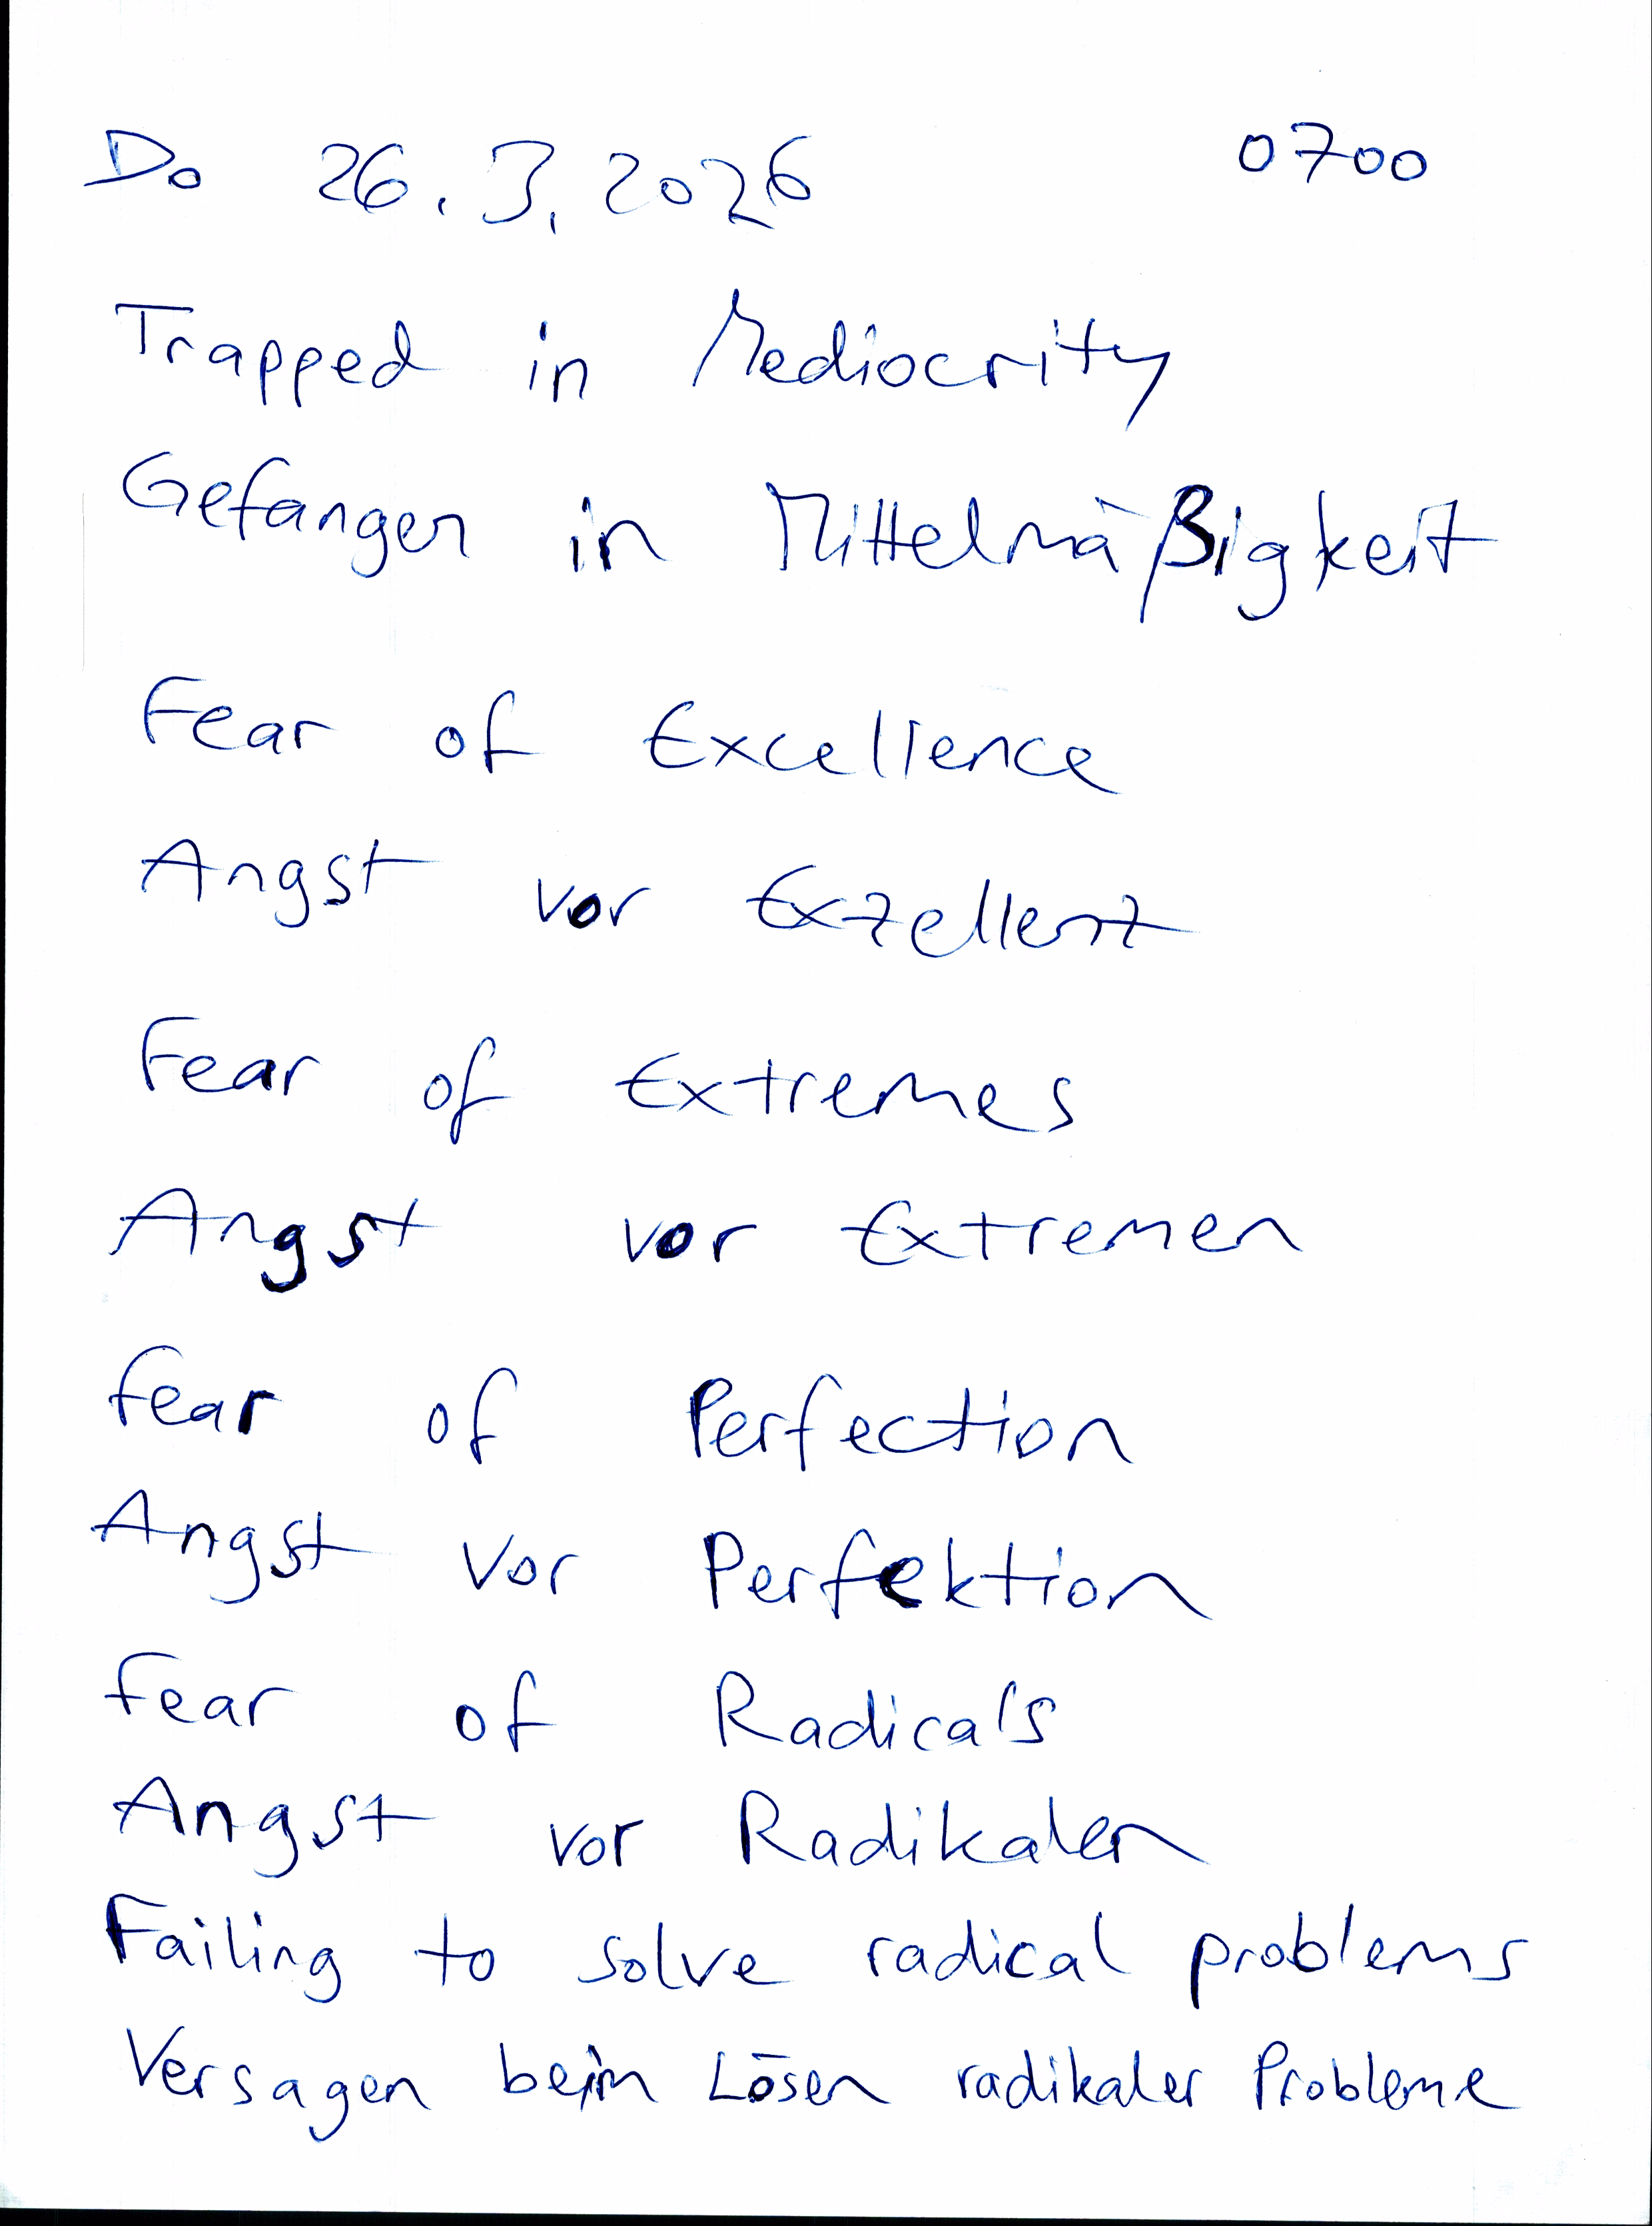 Do 26.3.2026 0700
Trapped in Mediocrity
Gefangen in Mittelmäßigkeit
Fear of Excellence
Angst vor Exzellenz
Fear of Extremes
Angst vor Extremen
Fear of Perfection
Angst vor Perfektion
Fear of Radicals
Angst vor Radikalen
Failing to solve radical problems
Versagen beim Lösen radikaler Probleme